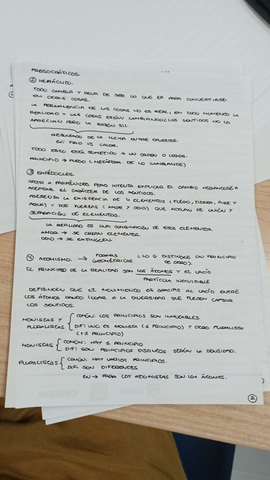 PRESOCRÁTICOS.
② HERÁCLITO.
TODO CAMBIA Y DEJA DE SER LO QUE ES PARA CONVERTIRSE
EN OTRAS COSAS.
LA PERMANENCIA DE LAS COSAS NO ES REAL, EN TODO MOMENTO LA
REALIDAD Y LAS COSAS ESTÁN CAMBIANDO (LOS SENTIDOS NO LO
APRECIAN PERO LA RAZÓN SÍ).
RESULTADO DE LA LUCHA ENTRE CONTRARIOS
EJ: FRÍO VS CALOR.
TODO ESTO ESTÁ SOMETIDO A UN ORDEN O LOGOS.
PRINCIPIO → FUEGO (METÁFORA DE LO CAMBIANTE)
③ EMPÉDOCLES.
IMITA A PARMÉNIDES PERO INTENTA EXPLICAR EL CAMBIO NEGÁNDOSE A
ACEPTAR EL CARÁCTER DE LOS SENTIDOS.
PRESENTA LA EXISTENCIA DE 4 ELEMENTOS (FUEGO, TIERRA, AIRE Y
AGUA) Y DOS FUERZAS (AMOR Y ODIO) QUE ACTÚAN DE UNIÓN Y
SEPARACIÓN DE ELEMENTOS.
LA REALIDAD ES UNA COMBINACIÓN DE ESOS ELEMENTOS
AMOR → SE CREAN ELEMENTOS.
ODIO → SE EXTINGUEN.
④ ATOMISMO. → FORMAS GEOMÉTRICAS (LO Q DISTINGUE UN PRINCIPIO DE OTRO).
EL PRINCIPIO DE LA REALIDAD SON LOS ÁTOMOS Y EL VACÍO
PARTÍCULA INDIVISIBLE
DEFIENDEN QUE EL MOVIMIENTO ES GRACIAS AL VACÍO ENTRE
LOS ÁTOMOS DANDO LUGAR A LA DIVERSIDAD QUE PUEDEN CAPTAR
LOS SENTIDOS.
MONISTAS Y { COMÚN: LOS PRINCIPIOS SON INMUTABLES.
PLURALISTAS { DIF: UNO ES MONISTA (1 PRINCIPIO) Y OTRO PLURALISTA
(+1 PRINCIPIO)
MONISTAS { COMÚN: HAY 1 PRINCIPIO
DIF: SON PRINCIPIOS DISTINTOS SEGÚN LA
PLURALISTAS { COMÚN: HAY VARIOS PRINCIPIOS.
DIF: SON DIFERENTES
EJ → PARA LOS ATOMISTAS SON LOS ÁTOMOS.
②